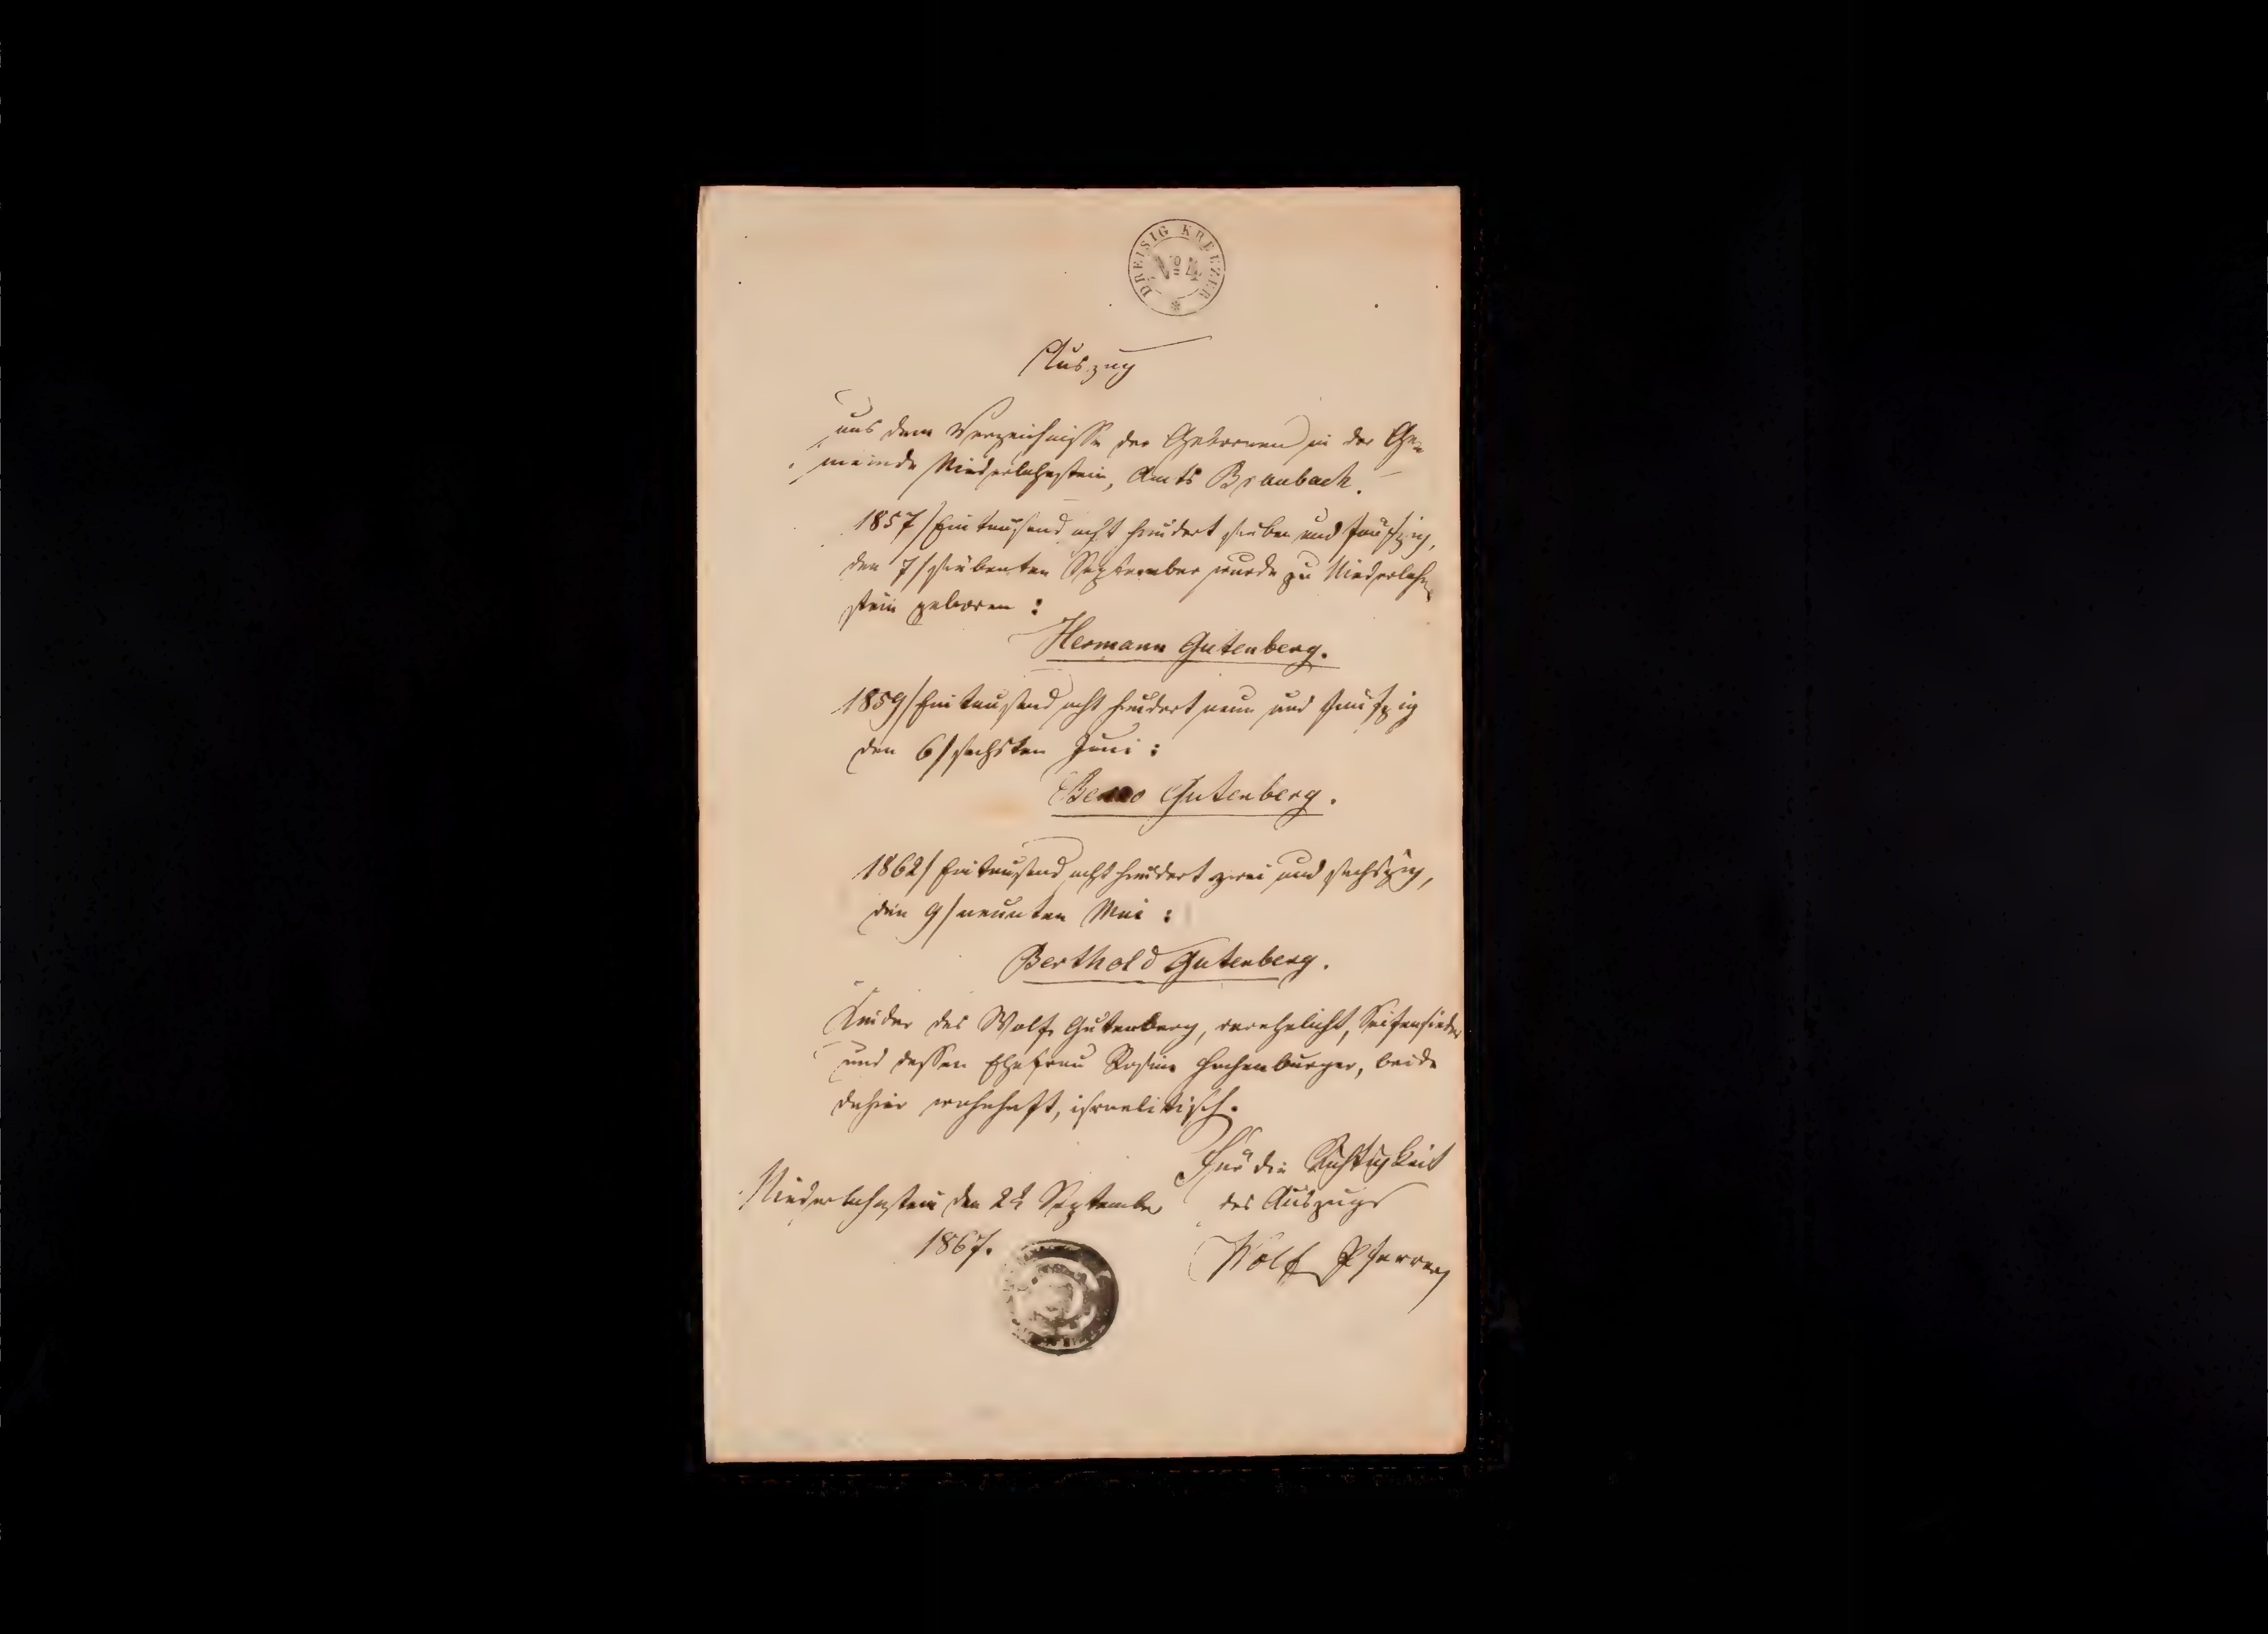 DREISIG KREUZER
No 4
Auszug
aus dem Verzeichnisse der Gebornen in der Ge-
meinde Niederlahnstein, Amts Braubach.
1857/Eintausend acht hundert sieben und fünfzig,
den 7/siebenten September wurde zu Niederlahn
stein geboren:
Hermann Gutenberg.
1859/Eintausend acht hundert neun und fünfzig
den 6/sechsten Juni:
Benno Gutenberg.
1862/Eintausend acht hundert zwei und sechszig,
den 9/neunten Mai:
Berthold Gutenberg.
Kinder des Wolf Gutenberg, verehelicht, Seifensieder
und dessen Ehefrau Rosine Hachenburger, beide
dahier wohnhaft, israelitisch.
Für die Richtigkeit
des Auszugs
Niederlahnstein den September
1867.
Wolf Pfarrer